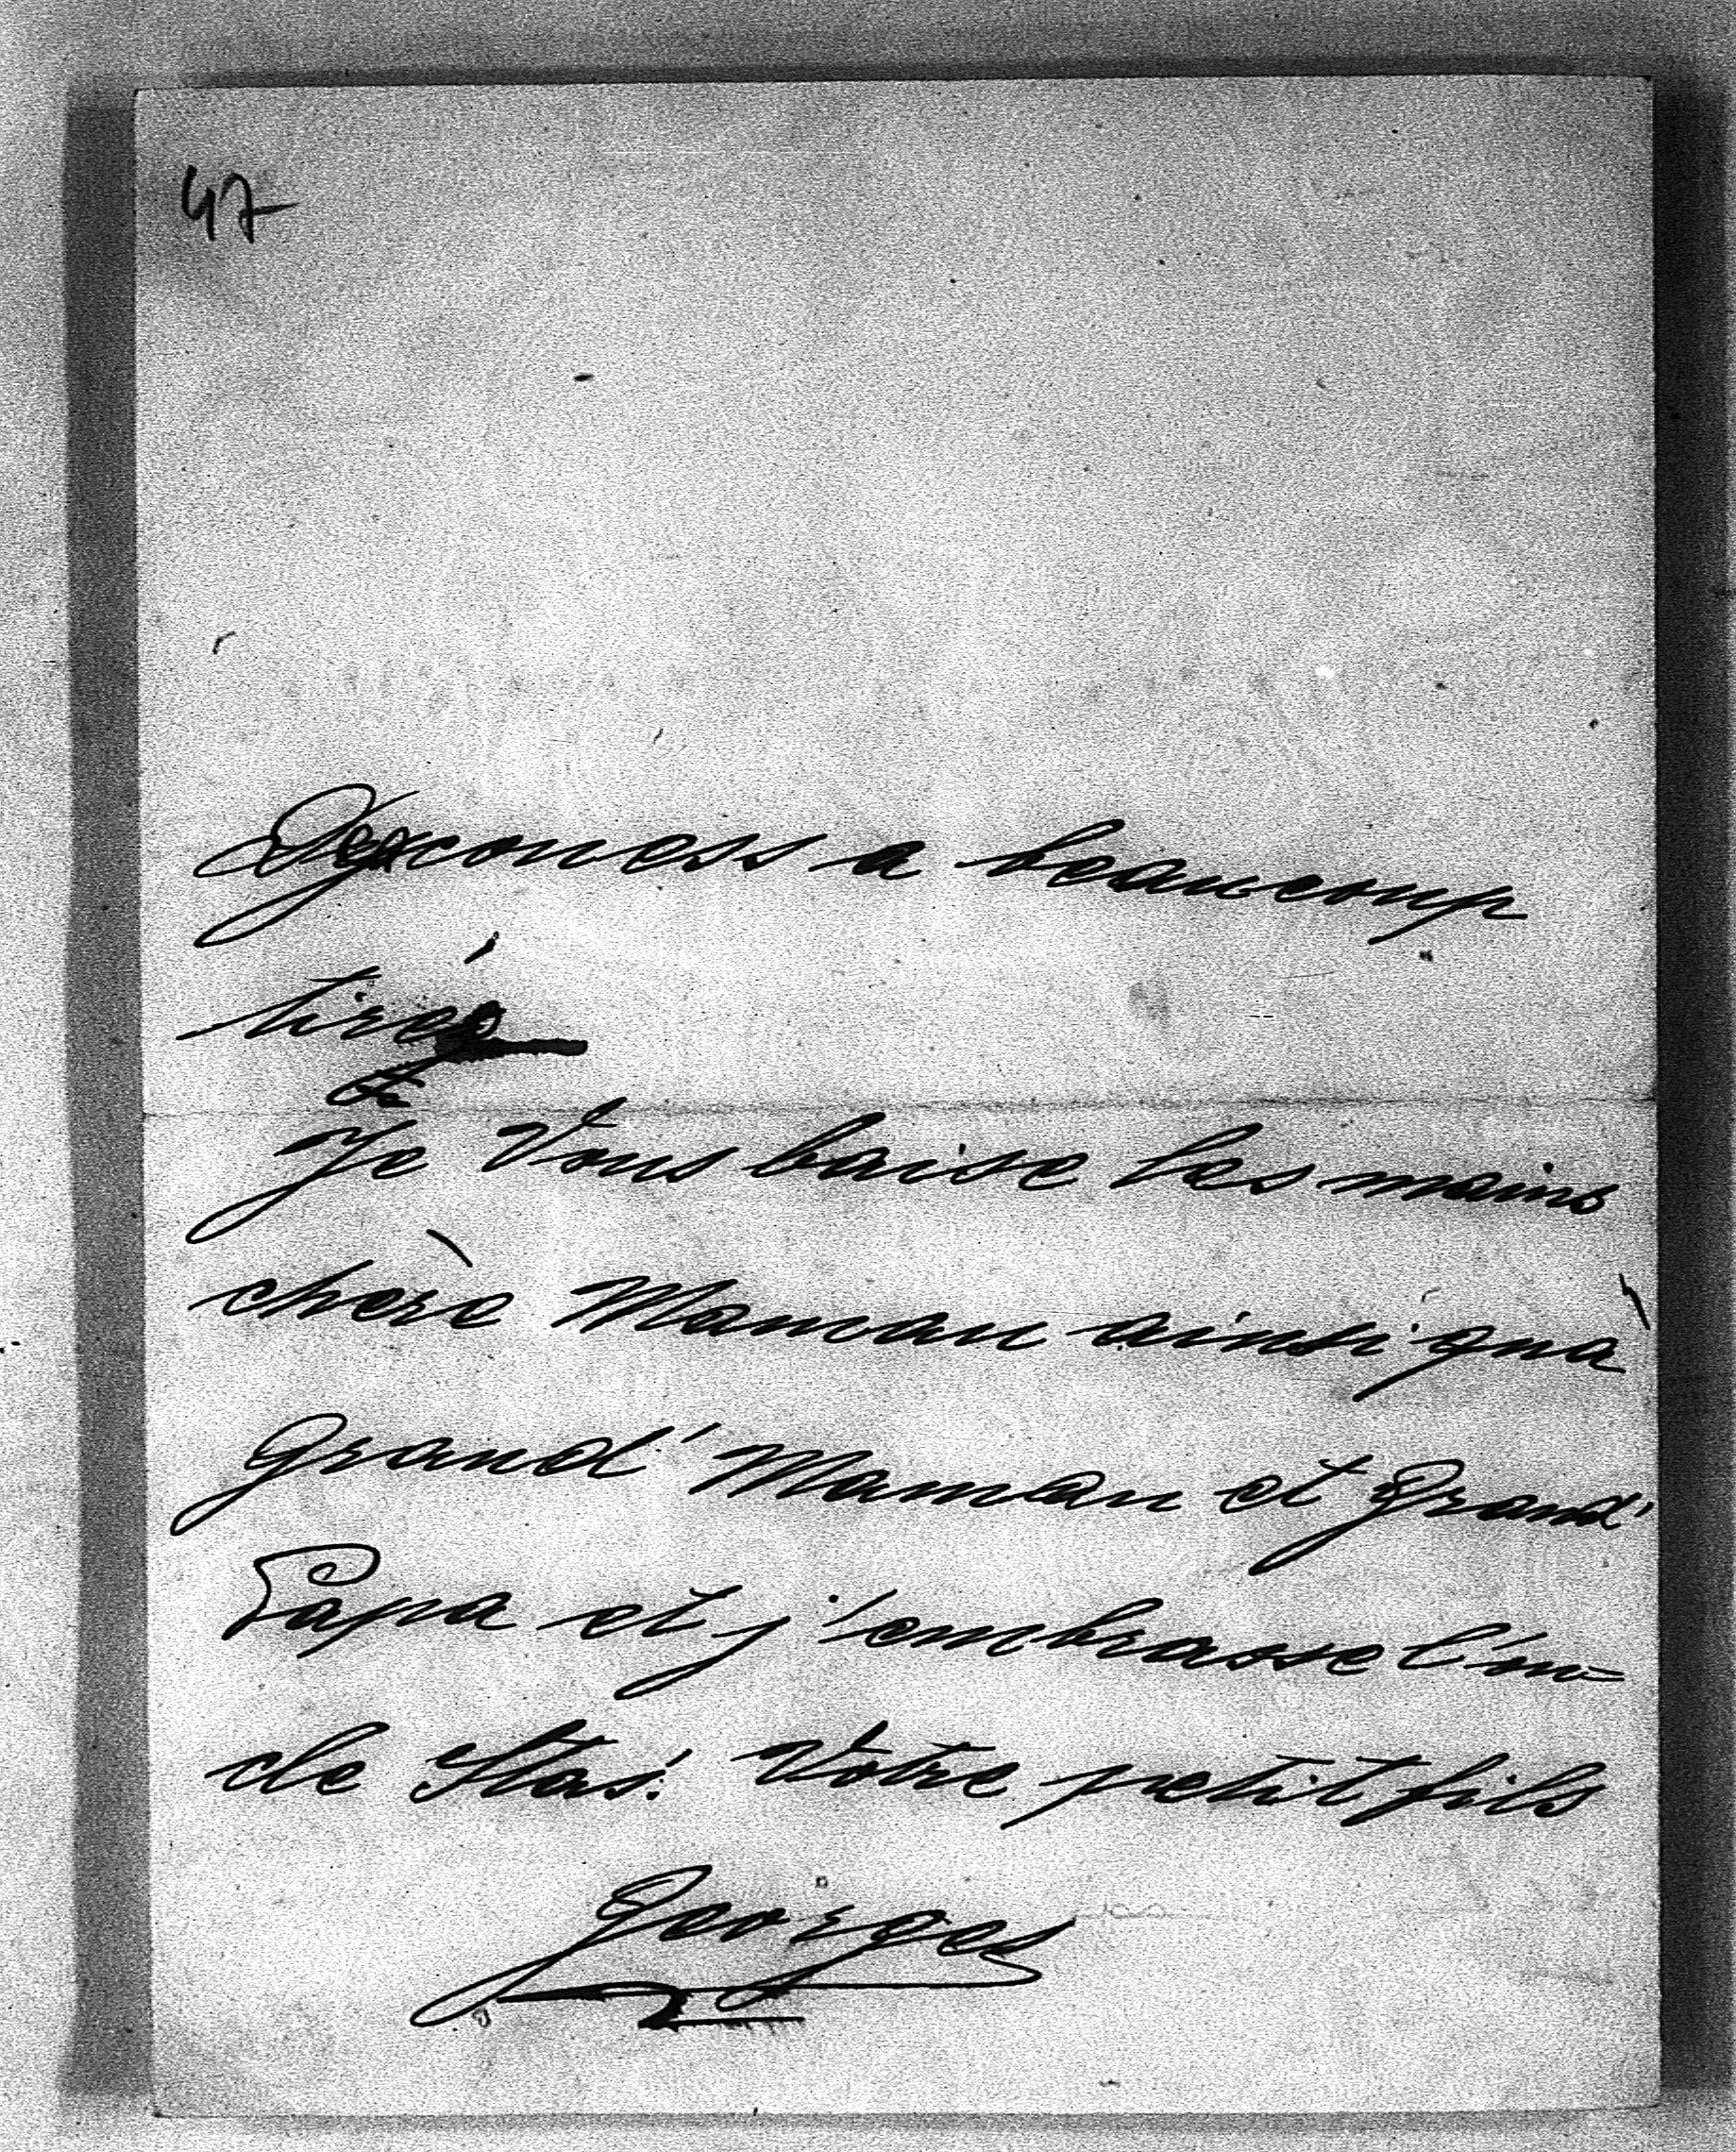 47
a beaucoup
tiré
Je Vous baise les mains
chère Maman ainsi qua'
Grand' Maman et Grand'
Papa et j'embrasse l'on-
cle Stas! Votre petit fils
Georges